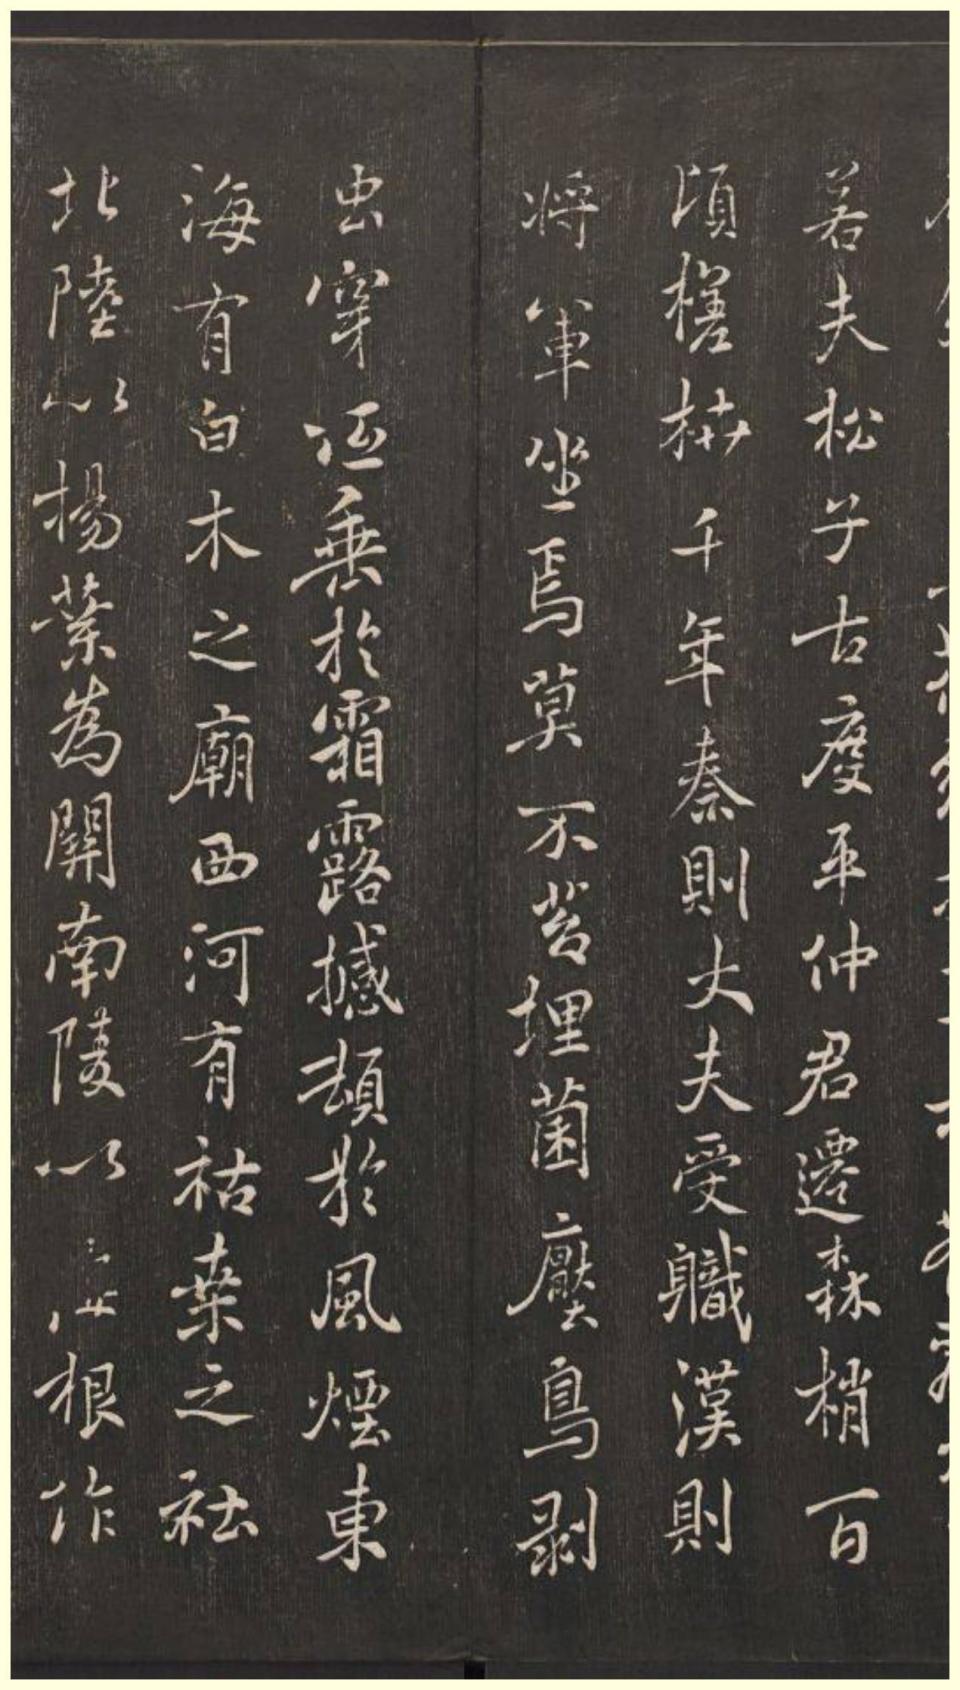 若夫松子古度平仲君遷森梢百
頃槎枿千年秦則大夫受職漢則
將軍坐焉莫不苔埋菌壓鳥剥
虫穿低垂於霜露撼頓於風煙東
海有白木之廟西河有枯桑之社
北陸以楊葉為關南陵以根作